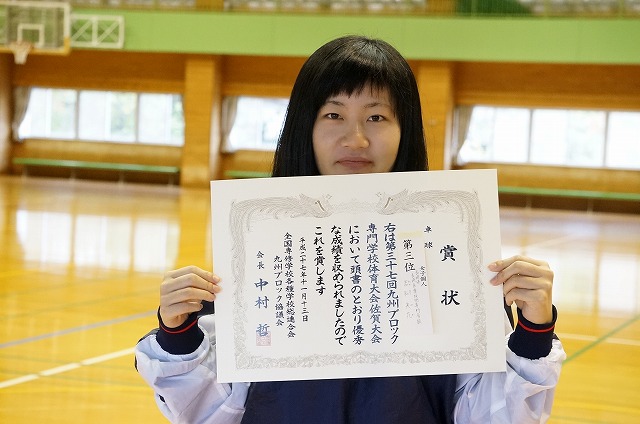 賞状
卓球
女子個人
第三位
右は第三十七回九州ブロック
専門学校体育大会佐賀大会
において頭書のとおり優秀
な成績を収められましたので
これを賞します
平成二十七年十一月十三日
全国専修学校各種学校総連合会
九州ブロック協議会
会長 中村 哲